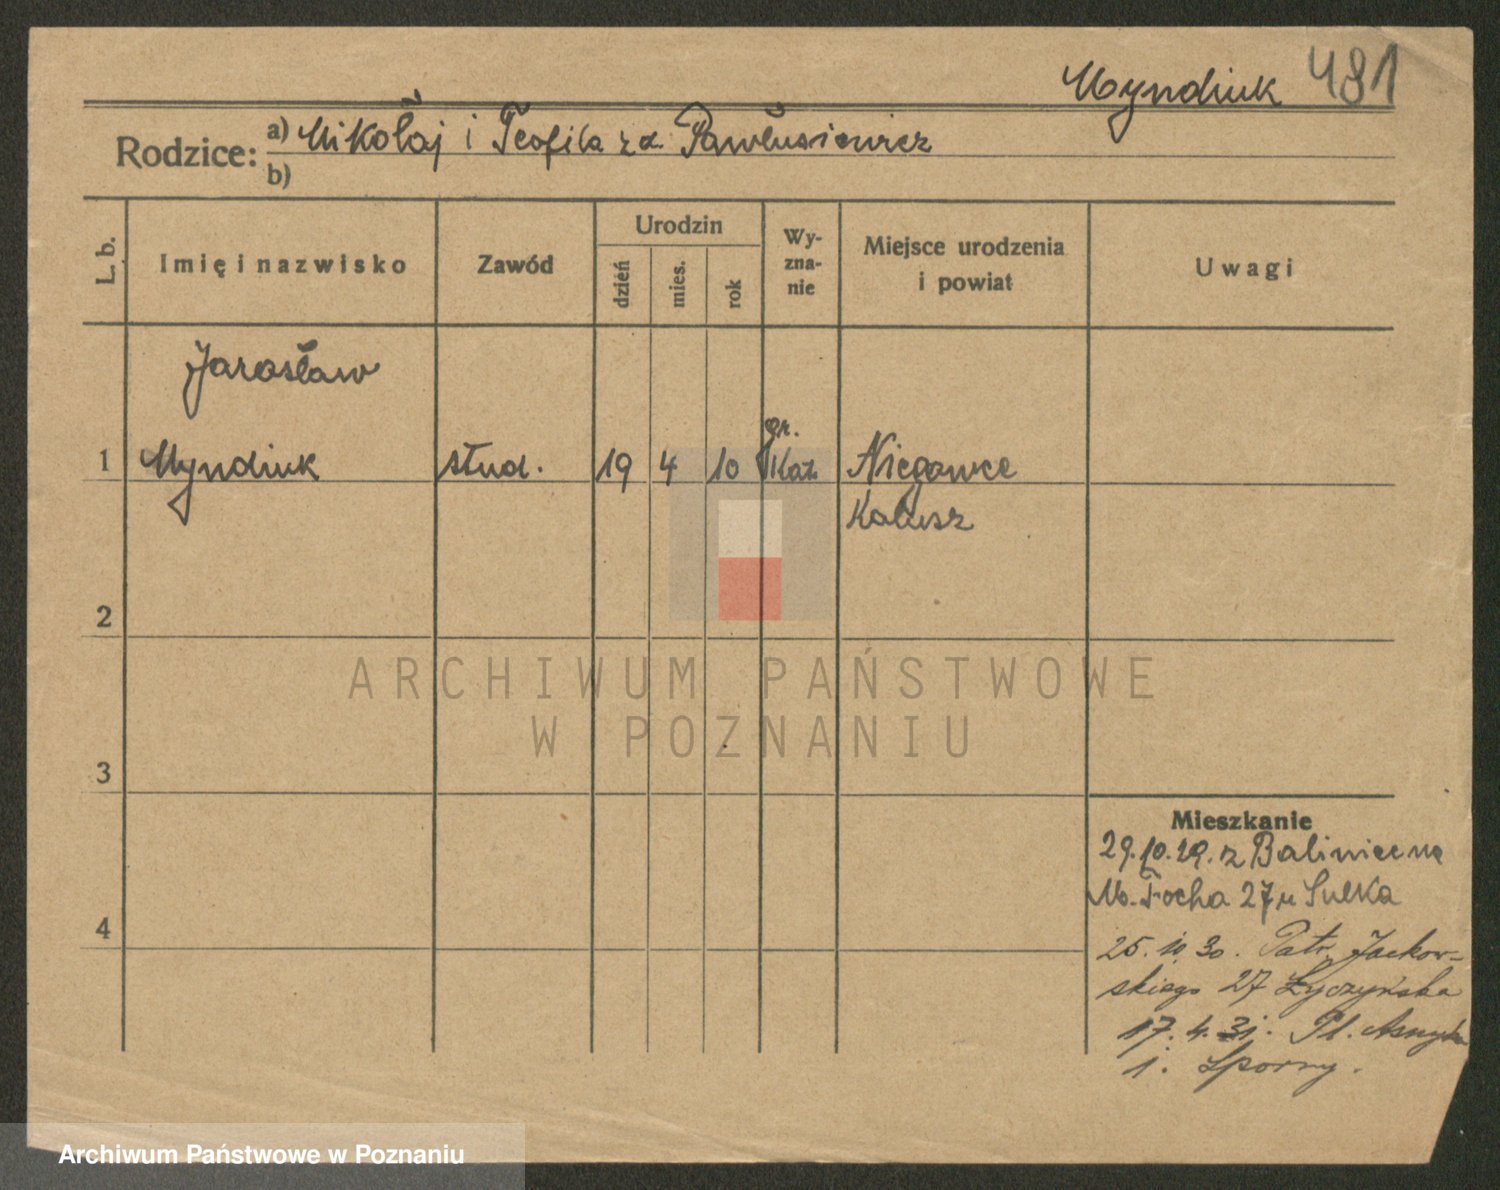 Myndiuk 481
Rodzice: a) Mikołaj i Teofila zd. Pawlusiewicz
b)
L. b.
Imię i nazwisko
Zawód
Urodzin
dzień
mies.
rok
Wy-
zna-
nie
Miejsce urodzenia
i powiat
Uwagi
Jarosław
gr.
1 Myndiuk stud. 19 4 10 kat. Niegowce
Kalusz
2
ARCHIWUM PAŃSTWOWE
W POZNANIU
3
Mieszkanie
29.10.29. z
M. Focha 27 u Sulka
4
25.10.30. Patr. Jackow-
skiego 27 Łyczyńska
17.4.31. Pl. Asnyka
1. Sporny.
Archiwum Państwowe w Poznaniu